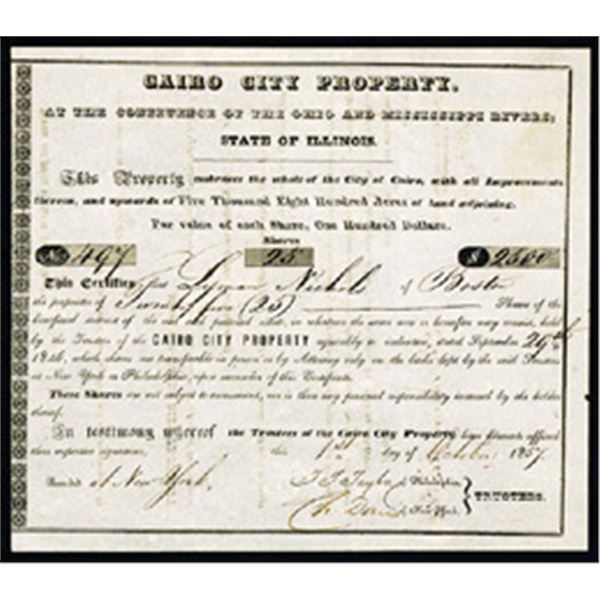 CAIRO CITY PROPERTY.
AT THE CONFLUENCE OF THE OHIO AND MISSISSIPPI RIVERS;
STATE OF ILLINOIS.
This Property embraces the whole of the City of Cairo, with all Improvements
thereon, and upwards of Five Thousand Eight Hundred Acres of land adjoining.
Par value of each Share, One Hundred Dollars.
Shares
No 497 25 $ 2500
This Certifies that Lyman Nichols of Boston
the proprietor of Twenty five (25) Shares of the
beneficial interest of the held
by the Trustees of the CAIRO CITY PROPERTY agreeably to stated September 29th
1846, which shares are transferable in person or by Attorney only on the books kept by the said Trustees
at New York or Philadelphia, upon surrender of this Certificate.
These Shares are not subject to assessment, nor is there any personal responsibility incurred by the holder
thereof.
In testimony whereof the Trustees of the Cairo City Property have hereunto affixed
their respective signatures this 1st day of October 1857
Recorded at New York. T S Taylor of Philadelphia
of New York. TRUSTEES.